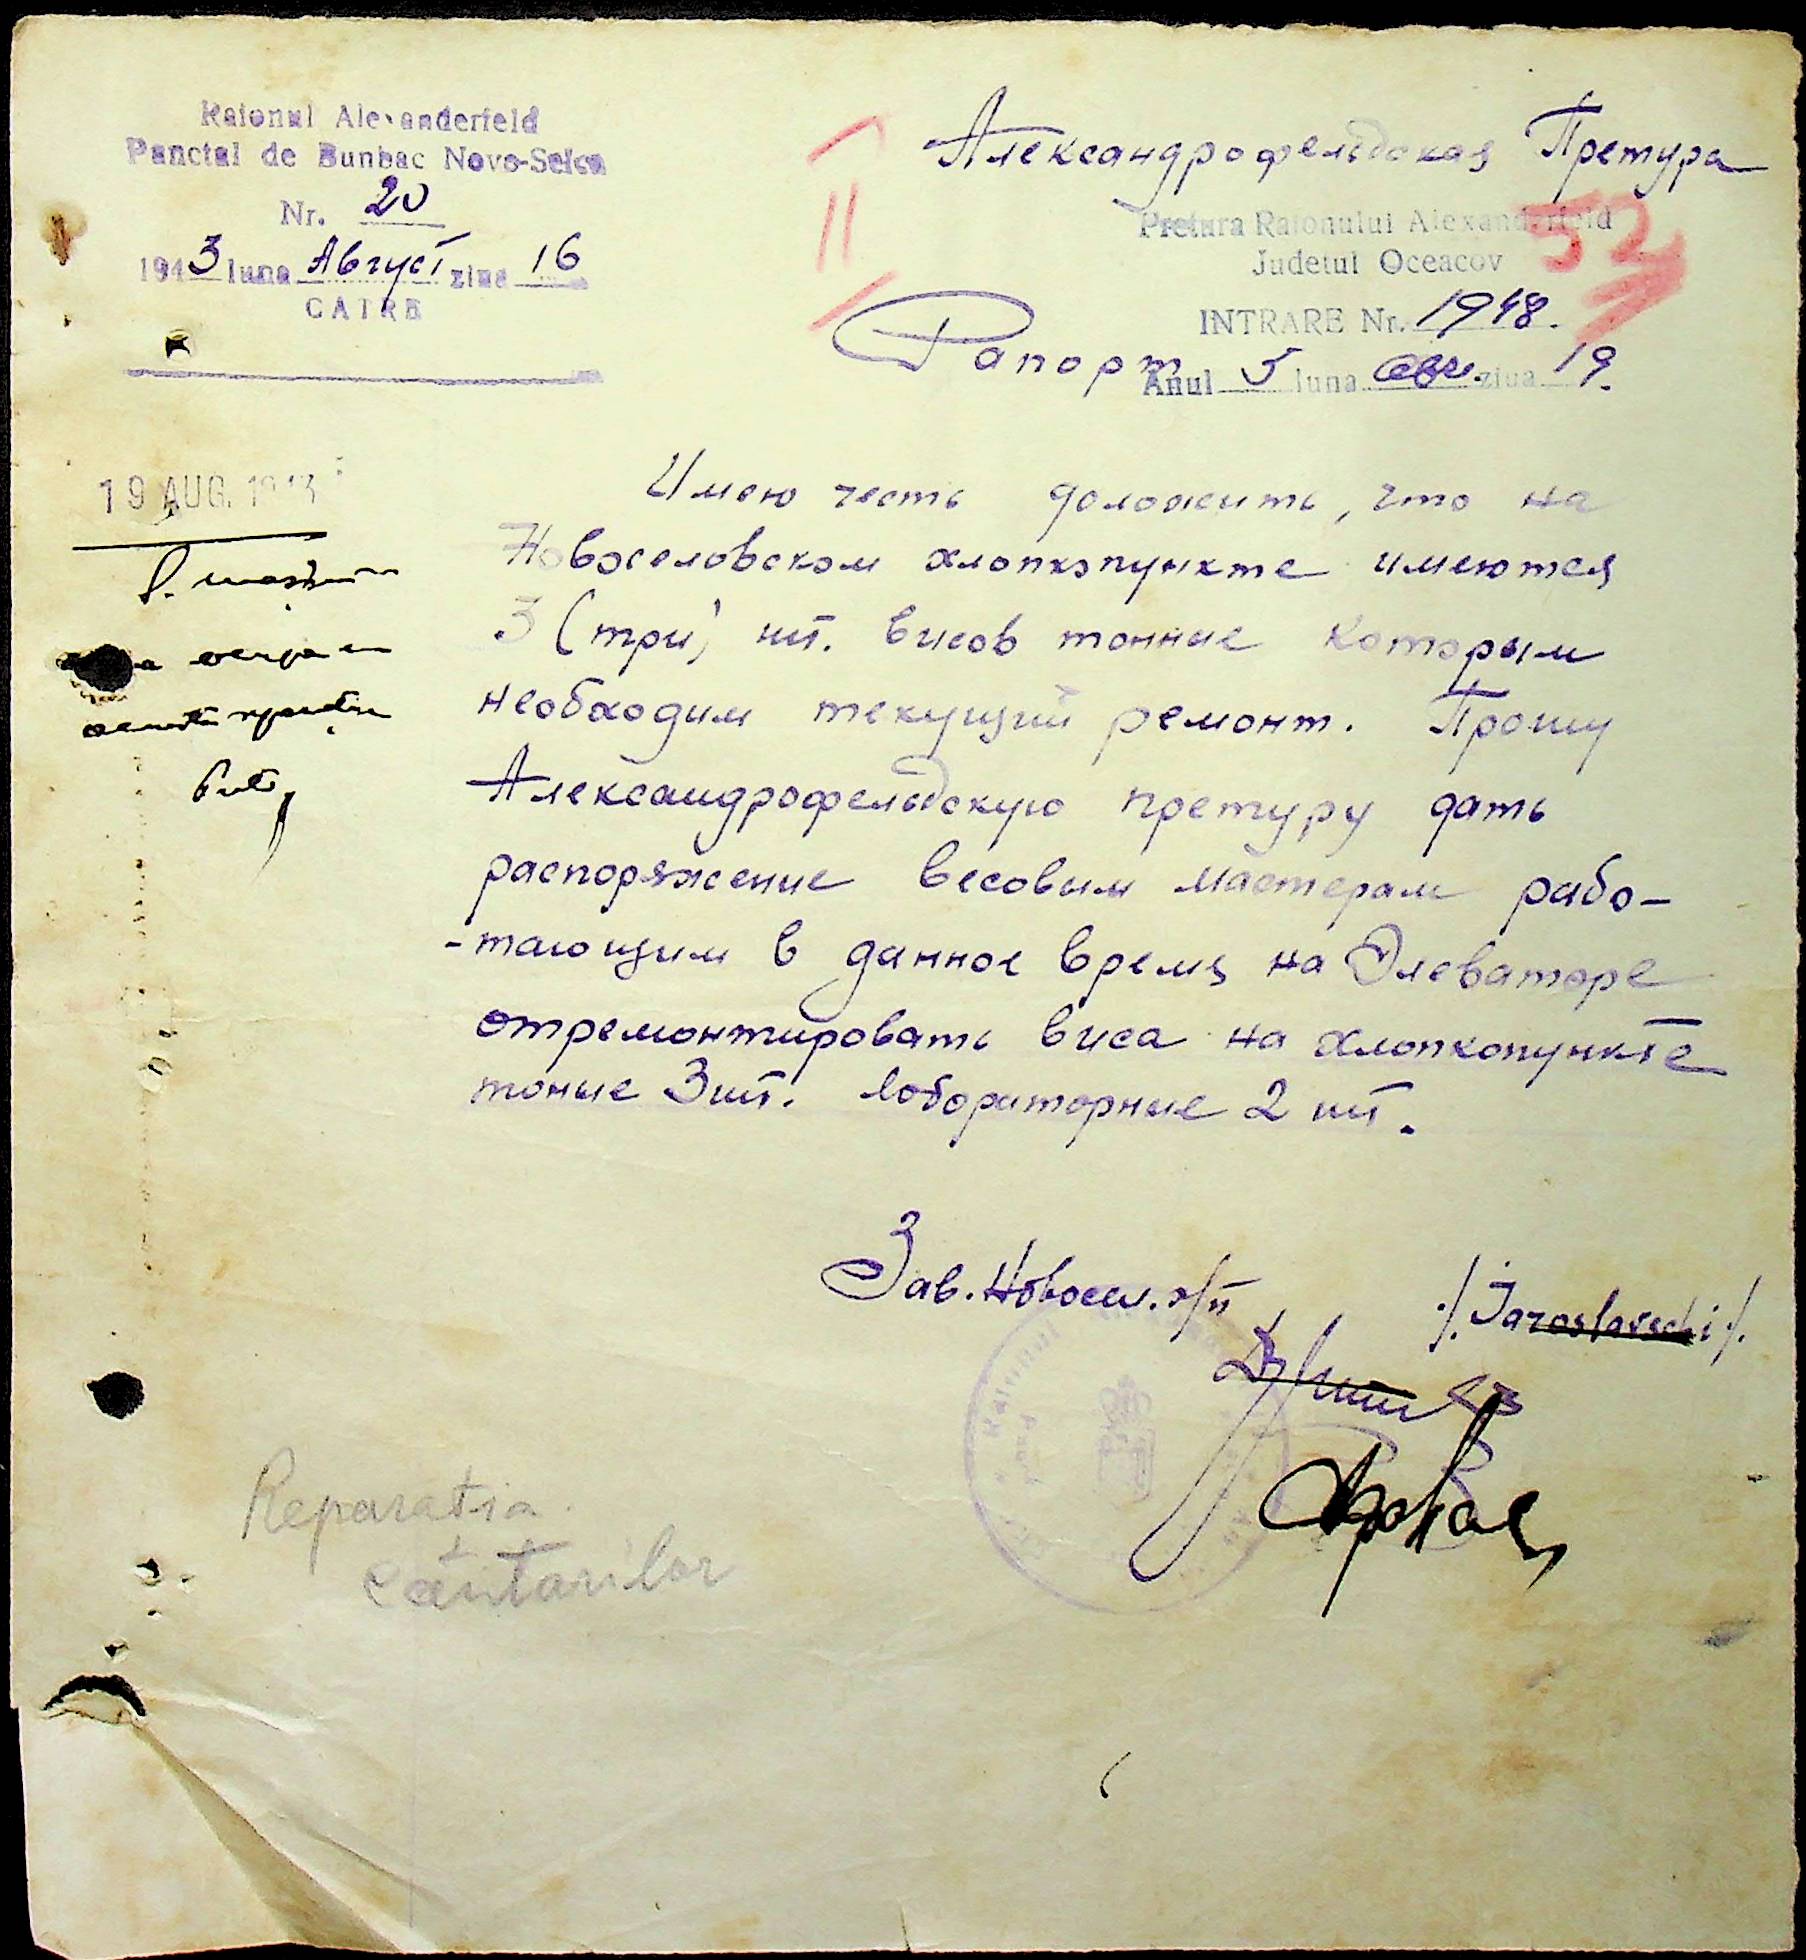 Raionul Alexanderfeld
Punctul de Bunbac Novo-Selca
Nr. 20
1943 luna Август ziua 16
CATRE
Александрофельдская Претура
Pretura Raionului Alexanderfeld
Judetul Oceacov
INTRARE Nr. 1948.
Anul 3 luna авг. ziua 19.
II
52
Рапорт
19 AUG. 1943
Имею честь доложить, что на
Новоселовском хлопкопункте имеются
3 (три) шт. висов тонние которым
необходим текущий ремонт. Прошу
Александрофельдскую претуру дать
распоряжение весовым мастерам рабо-
-тающим в данное время на Элеваторе
отремонтировать виса на хлопкопункте
тоные 3 шт. лобораторные 2 шт.
Зав. Новосел. х/п
./. Jaroslavschi ./.
Reparatia
cântarilor